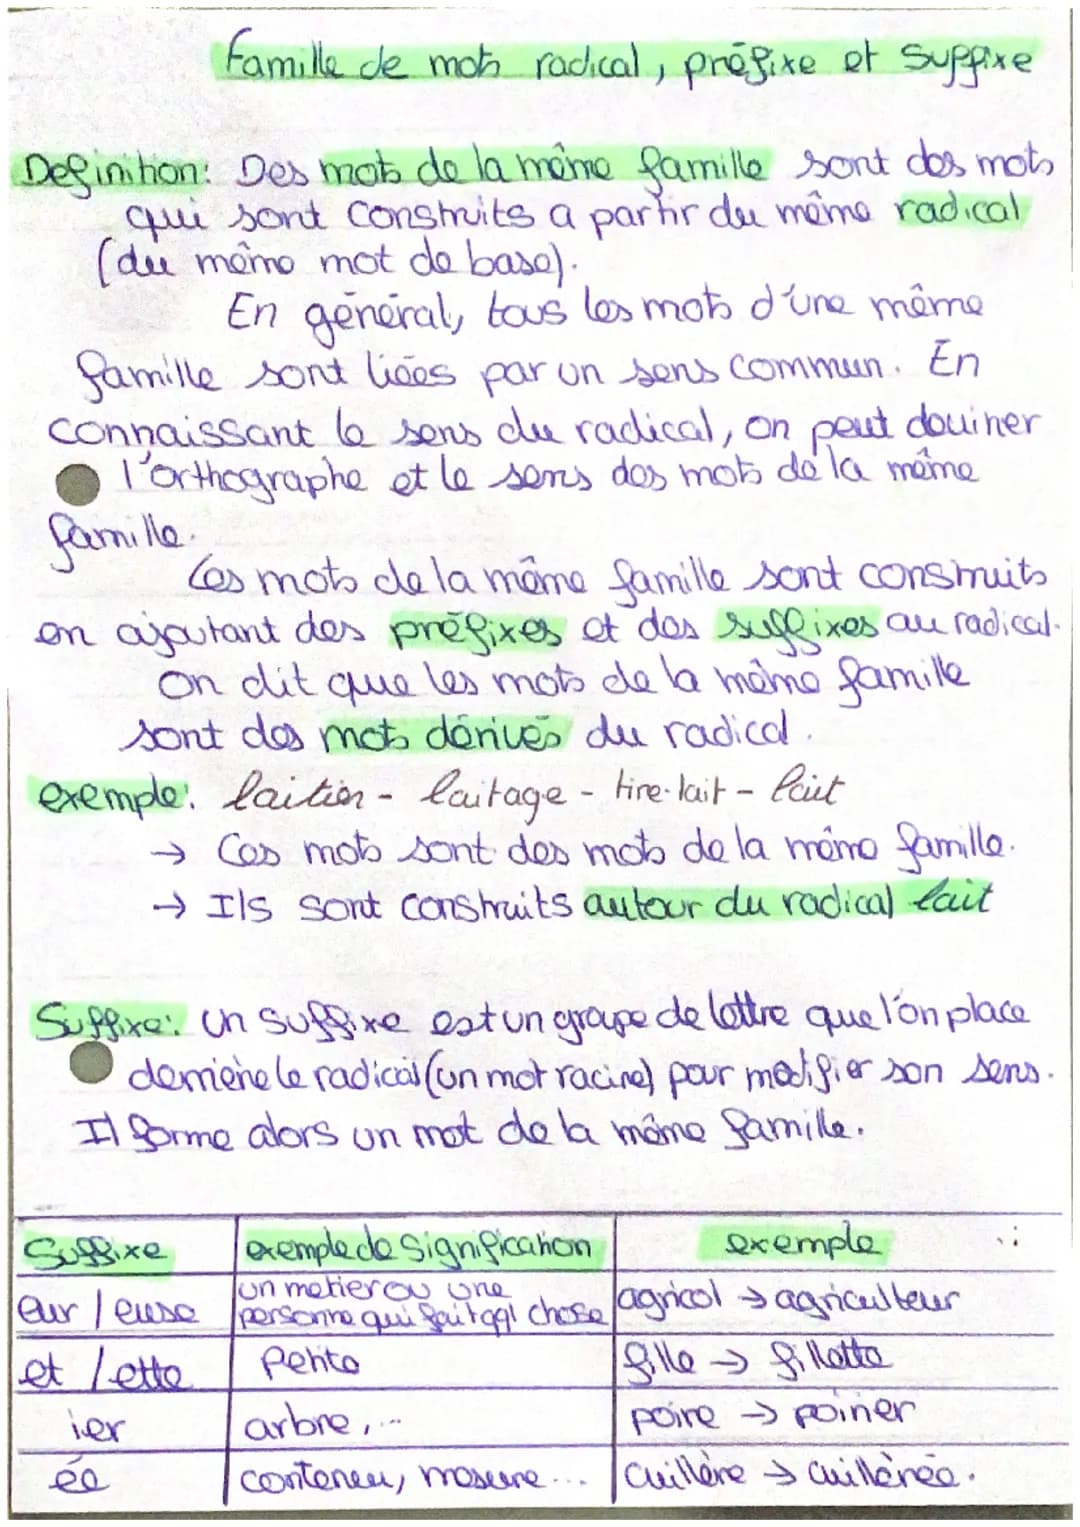 Famille de mots radical, préfixe et Suffixe
Definition: Des mots de la même famille sont des mots
qui sont construits a partir du même radical
(du même mot de base).
En général, tous les mots d'une même
famille sont liées par un sens commun. En
connaissant le sens du radical, on peut douiner
l'orthographe et le sens des mots de la même
famille.
Les mots de la même famille sont construits
en ajoutant des préfixes et des suffixes au radical.
On dit que les mots de la même famille
sont des mots dérivés du radical.
exemple: laitier - laitage - tire-lait - lait
→ Ces mots sont des mots de la même famille.
→ Ils sont construits autour du radical lait
Suffixe: Un suffixe est un groupe de lettre que l'on place
derrière le radical (un mot racine) pour modifier son sens.
Il forme alors un mot de la même famille.
Suffixe exemple de Signification exemple
eur / euse un metier ou une personne qui fait qql chose agricol → agriculteur
et / ette Petite fille → fillette
ier arbre, ... poire → poirier
ée conteneu, mesure ... Cuillère → cuillèrée.